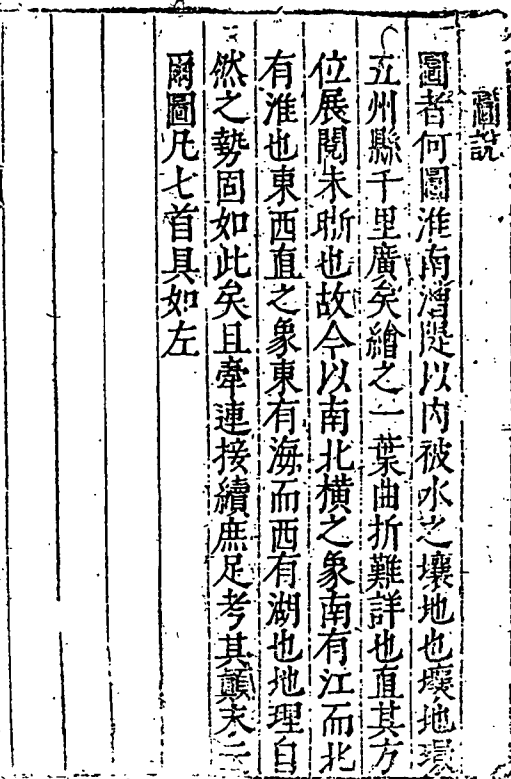 圖說
圖者何圖淮南漕隄以内被水之壤地也壤地環
五州縣千里廣矣繪之一葉曲折難詳也直其方
位展閱未晰也故今以南北橫之象南有江而北
有淮也東西直之象東有海而西有湖也地理自
然之勢固如此矣且牽連接續庶足考其顛末云
爾圖凡七首具如左